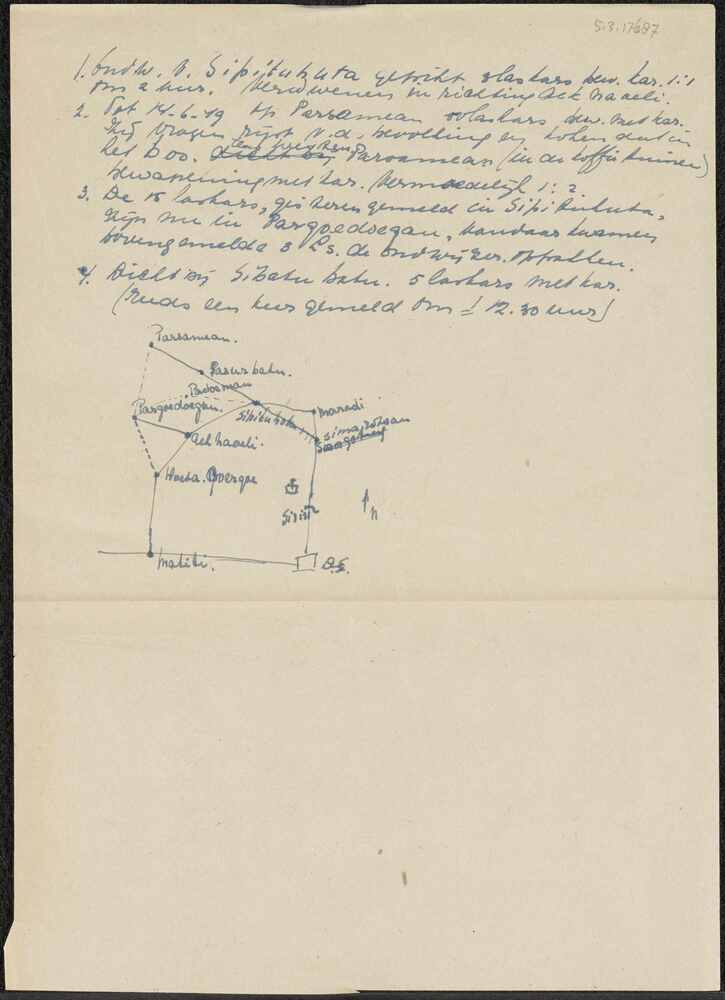 5.3.17687
1. Ondw. v. Sipituhuta gericht 3 laskars bew. kar. 1:1
om 2 uur. Verdwenen in richting Aek Naoeli.
2. Tot 14-6-49 op Parsamean laskars bew. met kar.
Zij vragen rijst v.d. bevolking en koken dat in
het bos. Parsamean (in de koffietuinen)
bewapening met kar. Vermoedelijk 1:2.
3. De 15 laskars, gisteren gemeld in Sipituhuta,
zijn nu in Pargoedoegan, vandaar kwamen
bovengemelde 3 L's. de ondwijzer. ophalen.
4. Dicht bij Sibatu batu. 5 laskars met kar.
(reeds een keer gemeld om ± 12.30 uur)
Parsamean.
Pasur batu.
Pargoedoegan.
Sipituhuta
Maradi
Simarotoan
Aek Naoeli.
Hoeta. Boergoe
n
Matiti.
D.S.